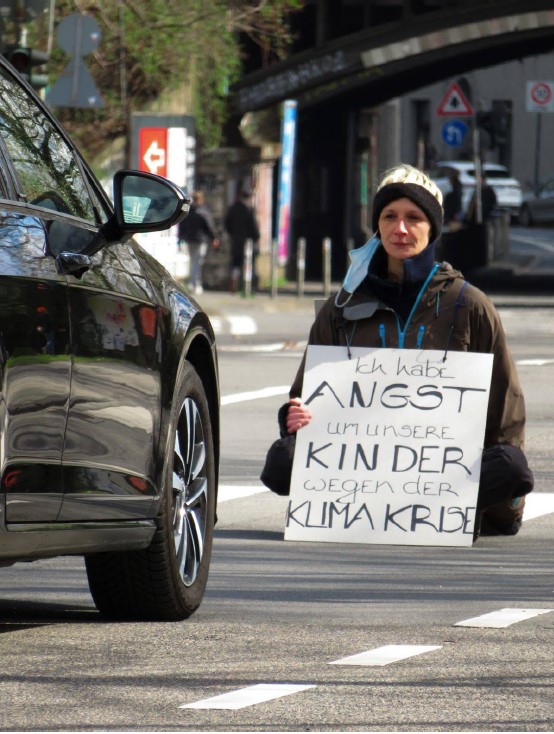 Ich habe
ANGST
um unsere
KINDER
wegen der
KLIMA KRISE